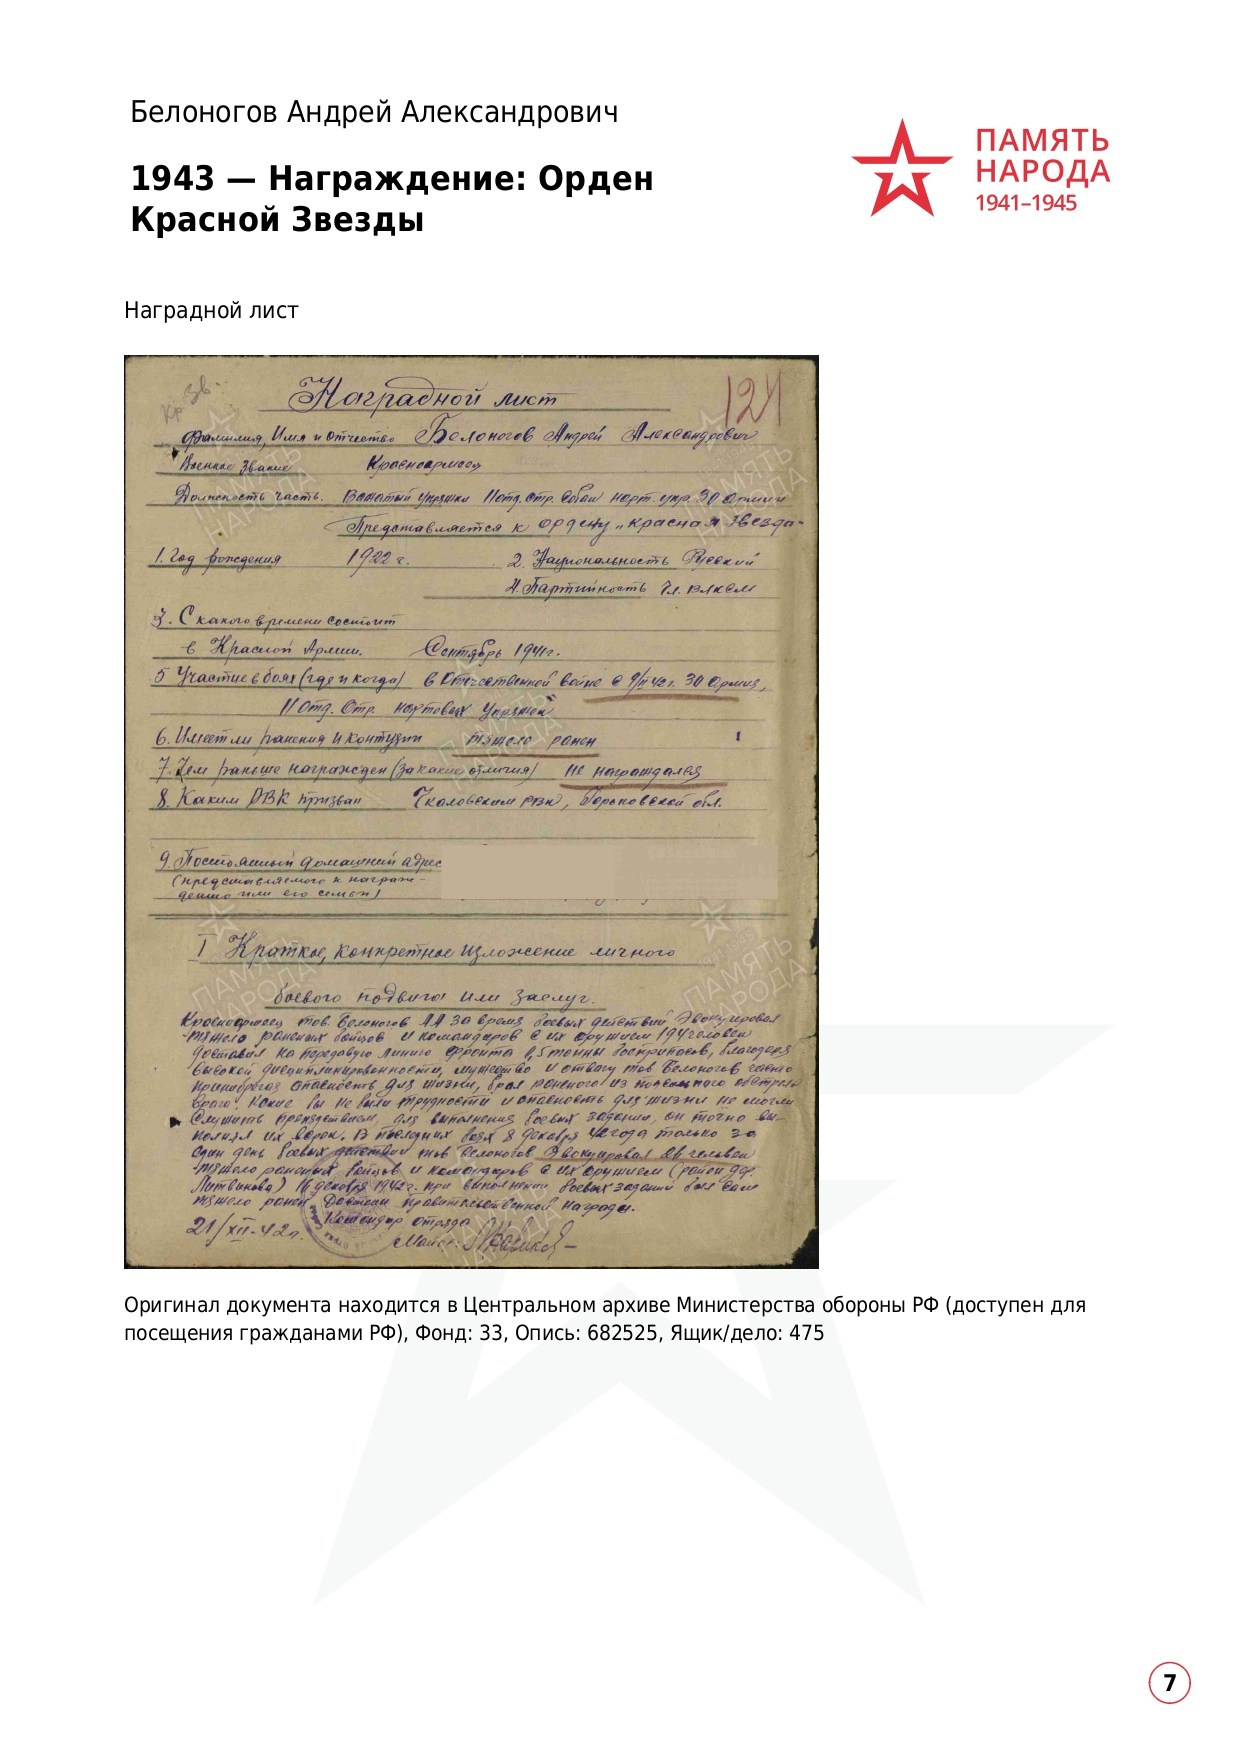 Белоногов Андрей Александрович
ПАМЯТЬ
НАРОДА
1941–1945
1943 — Награждение: Орден
Красной Звезды
Наградной лист
Кр. Зв.
Наградной лист
124
Фамилия, Имя и Отчество Белоногов Андрей Александрович
Военное Звание Красноармеец
Должность часть. Вожатый упряжки 11 отд. отр. собак нарт. упр. 30 Армии
Представляется к ордену „Красная Звезда"
1. Год рождения 1922 г. 2. Национальность Русский
4. Партийность Чл. ВЛКСМ
3. С какого времени состоит
в Красной Армии. Сентябрь 1941 г.
5 Участие в боях (где и когда) в Отечественной войне с 9/II 42 г. 30 Армия,
11 Отд. Отр. нартовых упряжек
6. Имеет ли ранения и контузии тяжело ранен
7. Чем раньше награжден (за какие отличия) не награждался
8. Каким РВК призван Чкаловским РВК, Горьковской обл.
9. Постоянный домашний адрес
(представляемого к награж-
дению или его семьи)
I Краткое, конкретное изложение личного
боевого подвига или заслуг.
Красноармеец тов. Белоногов АА за время боевых действий Эвакуировал
тяжело раненых бойцов и командиров с их оружием 194 человек
доставил на передовую линию фронта 8,5 тонны боеприпасов, благодаря
высокой дисциплинированности, мужество и отвагу тов Белоногов часто
пренебрегая опасность для жизни, брал раненого из под обстрела
врага. Какие бы не были трудности и опасность для жизни не могли
служить препятствием, для выполнения боевых задании, он точно вы-
полнял их в срок. В последних боях 8 декабря 42 года только за
один день боевых действий тов Белоногов Эвакуировал 26 человек
тяжело раненых бойцов и командиров с их оружием (район дер.
Литвиново) 16 декабря 1942 г. при выполнении боевых заданий был сам
тяжело ранен Достоин правительственной награды.
Командир отряда
21/XII-42 г.
Майор
Оригинал документа находится в Центральном архиве Министерства обороны РФ (доступен для
посещения гражданами РФ), Фонд: 33, Опись: 682525, Ящик/дело: 475
7